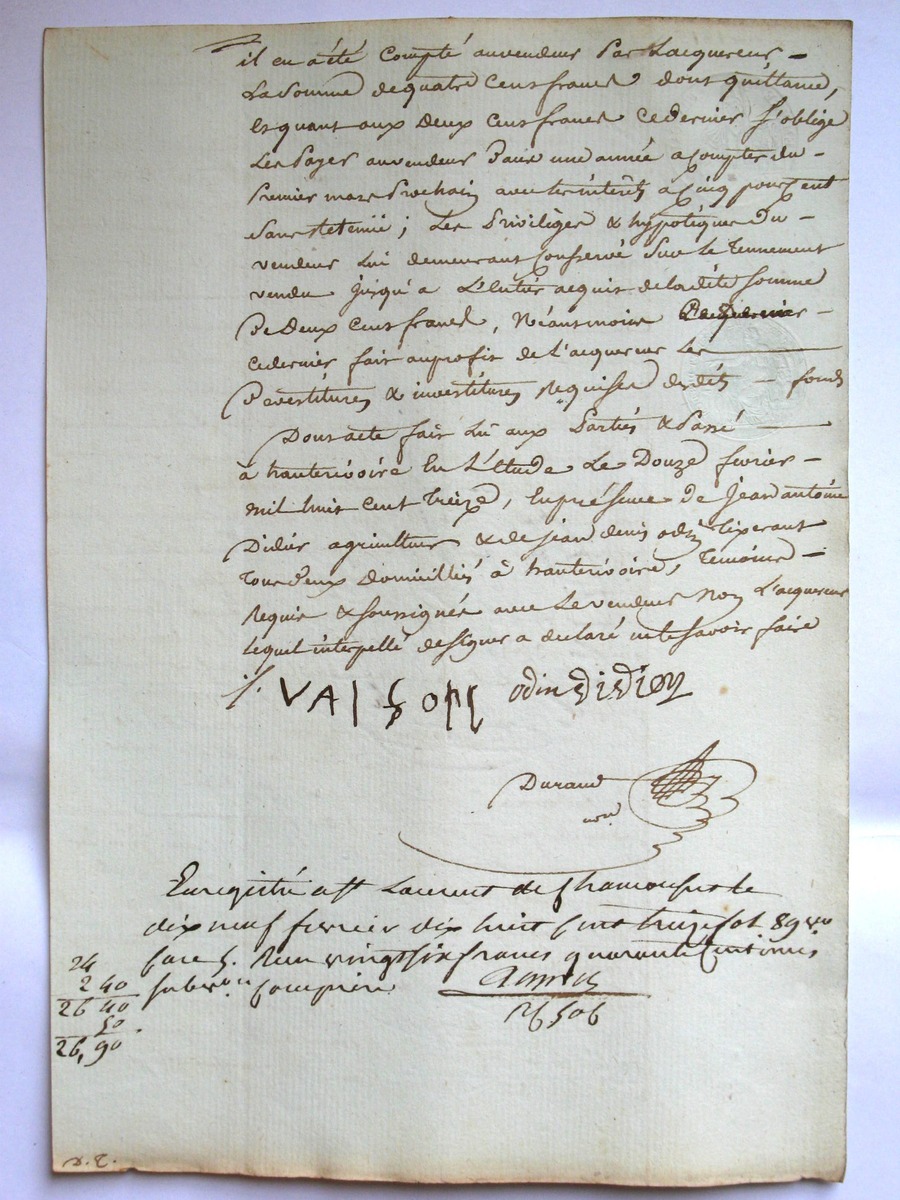 il en a été Compté au vendeur Par Lacquereur –
La Somme de quatre Cens francs dont quittance,
Et quant aux Deux Cens francs Cedernier s'oblige
Les Payer au vendeur Dans une année a compter du –
Premier mars Prochain avec les intérêts a Cinq pour Cent
Sans retenüe; Les Privilèges & hypotèques Du –
vendeur Lui demeurant Conservés Sur Le Tennement
vendu jusqu'a L'Entier acquis de ladite Somme
De Deux Cens francs, Néantmoins –
cedernier fait au profit de L'acquereur Les
Devestitures & investitures Requises desdits – fonds
Dont acte fait Lu aux Parties & Passé
à hauterivoire En L'étude Le Douze fevrier –
mil huit Cent Treize, En présence de Jean antoine
Didier agriculteur & de jean denis odin Tixerant
Tous deux Domiciliés à hauterivoire, Temoins –
Requis & soussignés avec Le vendeur Non L'acquereur
Lequel interpellé de signer a declaré ne le savoir faire
odin didier
Durand
nre
Enregistré a St Laurent de Chamousset le
dix neuf fevrier dix huit Cent treize fol 89 vo
Case 5. Reçu vingt six francs quarante Centimes
subvon Comprise
24
2 40
26 40
50
26,90
D. T.